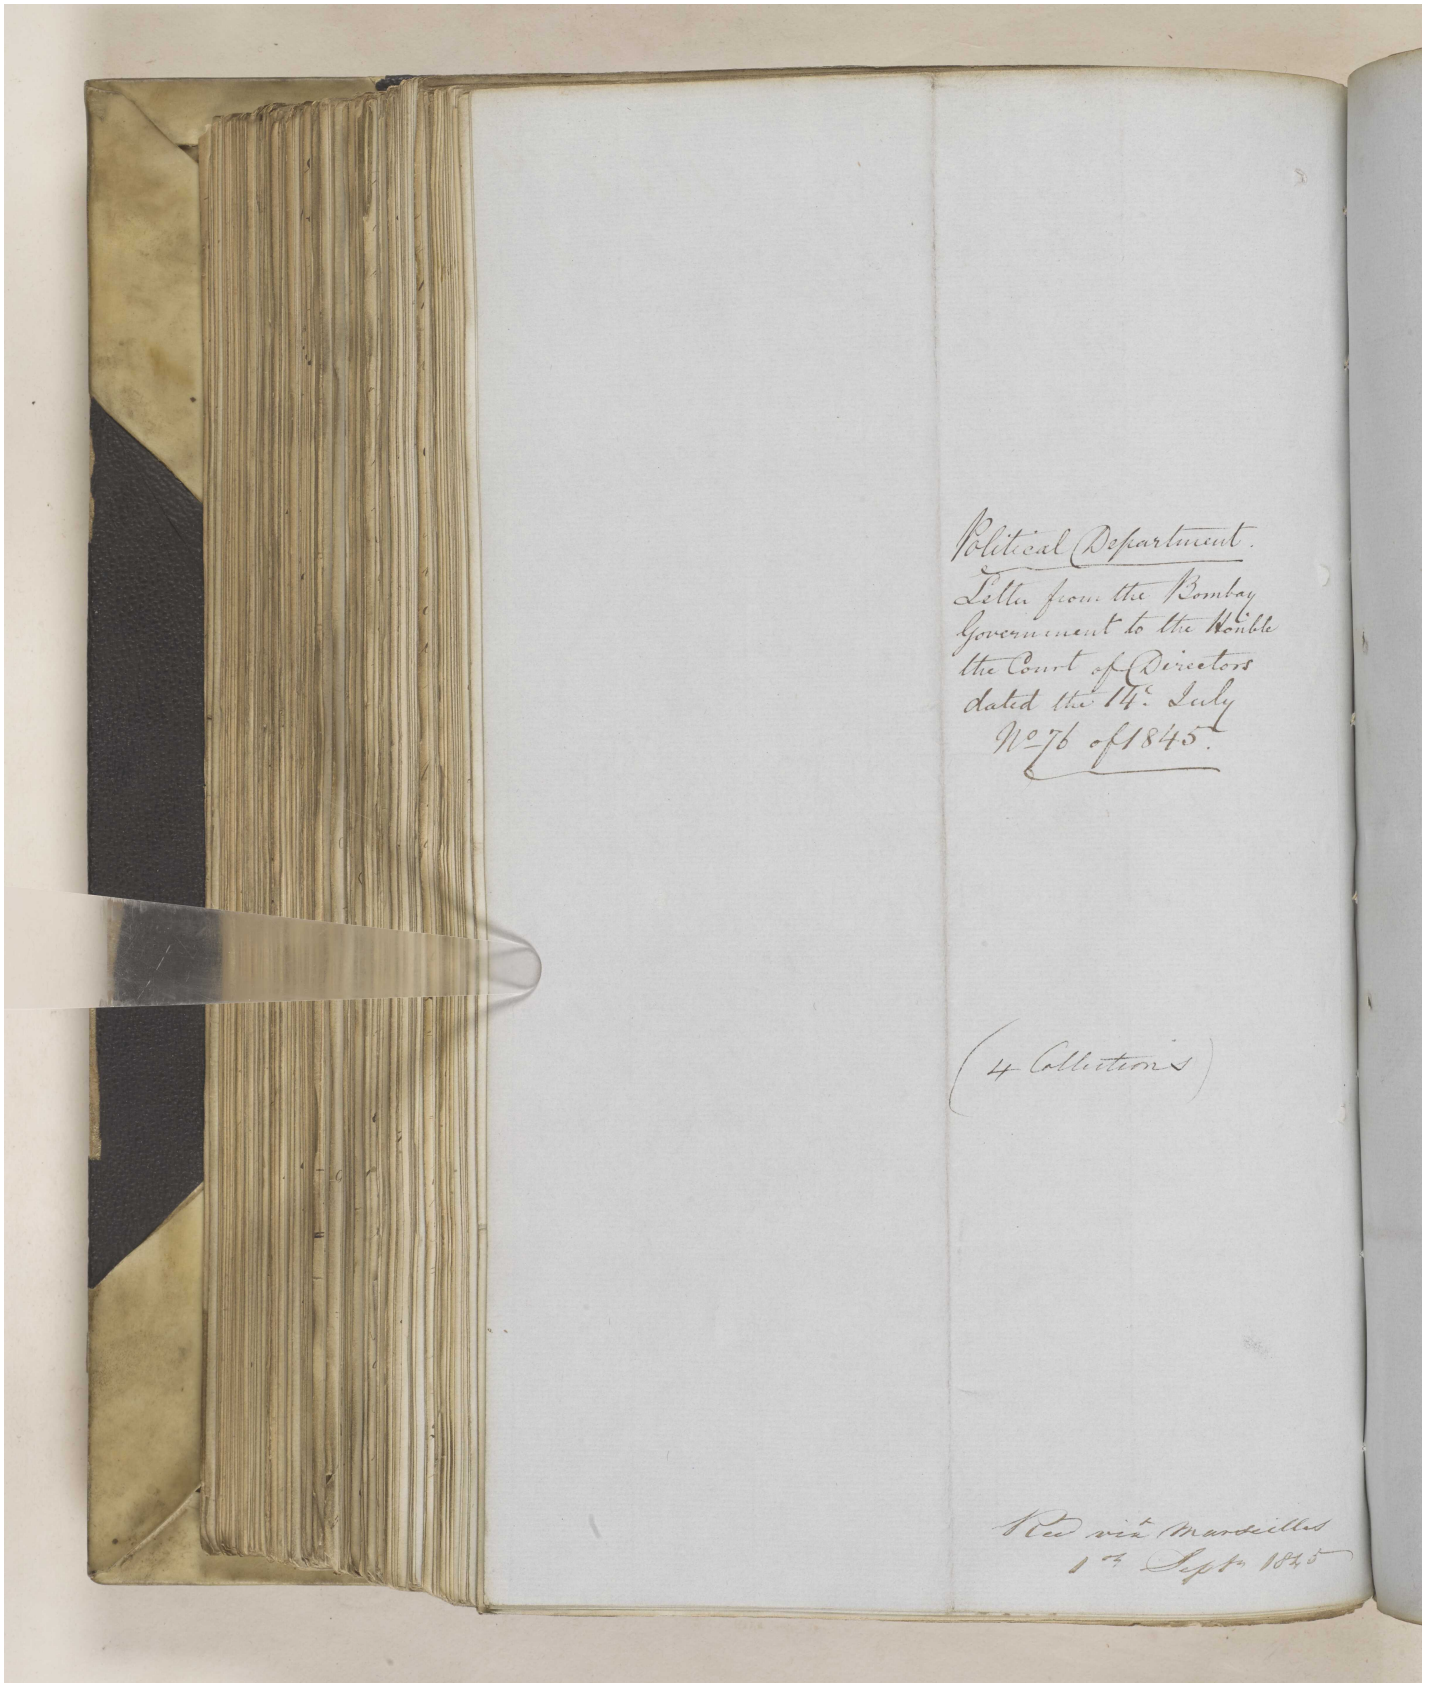 Political Department.
Letter from the Bombay
Government to the Honble
the Court of Directors
dated the 14th July
No 76 of 1845.
(4 Collections)
Recd via Marseilles
1st Septr 1845